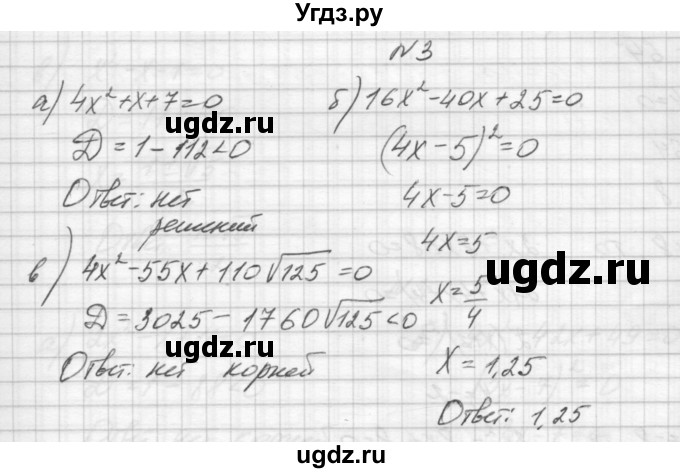 Угдз.ру
№3
а) 4x² + x + 7 = 0
Д = 1 - 112 < 0
Ответ: нет
решений
б) 16x² - 40x + 25 = 0
(4x - 5)² = 0
4x - 5 = 0
4x = 5
x = 5/4
x = 1,25
Ответ: 1,25
в) 4x² - 55x + 110√125 = 0
Д = 3025 - 1760√125 < 0
Ответ: нет корней
ugdz.ru
ugdz.ru
ugdz.ru
ugdz.ru
ugdz.ru